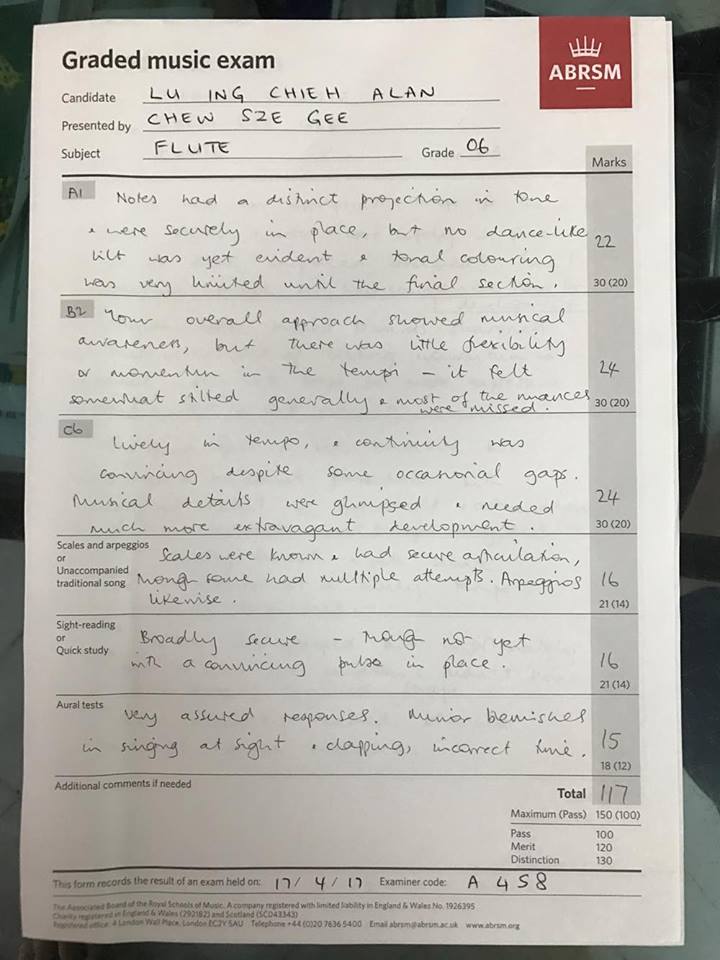 Graded music exam
ABRSM
Candidate LU ING CHIEH ALAN
Presented by CHEW SZE GEE
Subject FLUTE Grade 06
Marks
A1 Notes had a distinct projection in tone
& were securely in place, but no dance-like
lilt was yet evident & tonal colouring
was very limited until the final section.
22
30 (20)
B2 Your overall approach showed musical
awareness, but there was little flexibility
or momentum in the tempi – it felt
somewhat stilted generally & most of the nuances
were missed.
24
30 (20)
C6 Lively in tempo, & continuity was
convincing despite some occasional gaps.
Musical details were glimpsed & needed
much more extravagant development.
24
30 (20)
Scales and arpeggios
or
Unaccompanied
traditional song
Scales were known & had secure articulation,
though some had multiple attempts. Arpeggios
likewise.
16
21 (14)
Sight-reading
or
Quick study
Broadly secure – though not yet
with a convincing pulse in place.
16
21 (14)
Aural tests
Very assured responses. Minor blemishes
in singing at sight & clapping, incorrect time.
15
18 (12)
Additional comments if needed
Total 117
Maximum (Pass) 150 (100)
Pass 100
Merit 120
Distinction 130
This form records the result of an exam held on: 17/4/17 Examiner code: A 458
The Associated Board of the Royal Schools of Music. A company registered with limited liability in England & Wales No. 1926395
Charity registered in England & Wales (292182) and Scotland (SC043343)
Registered office: 4 London Wall Place, London EC2Y 5AU Telephone +44 (0)20 7636 5400 Email abrsm@abrsm.ac.uk www.abrsm.org